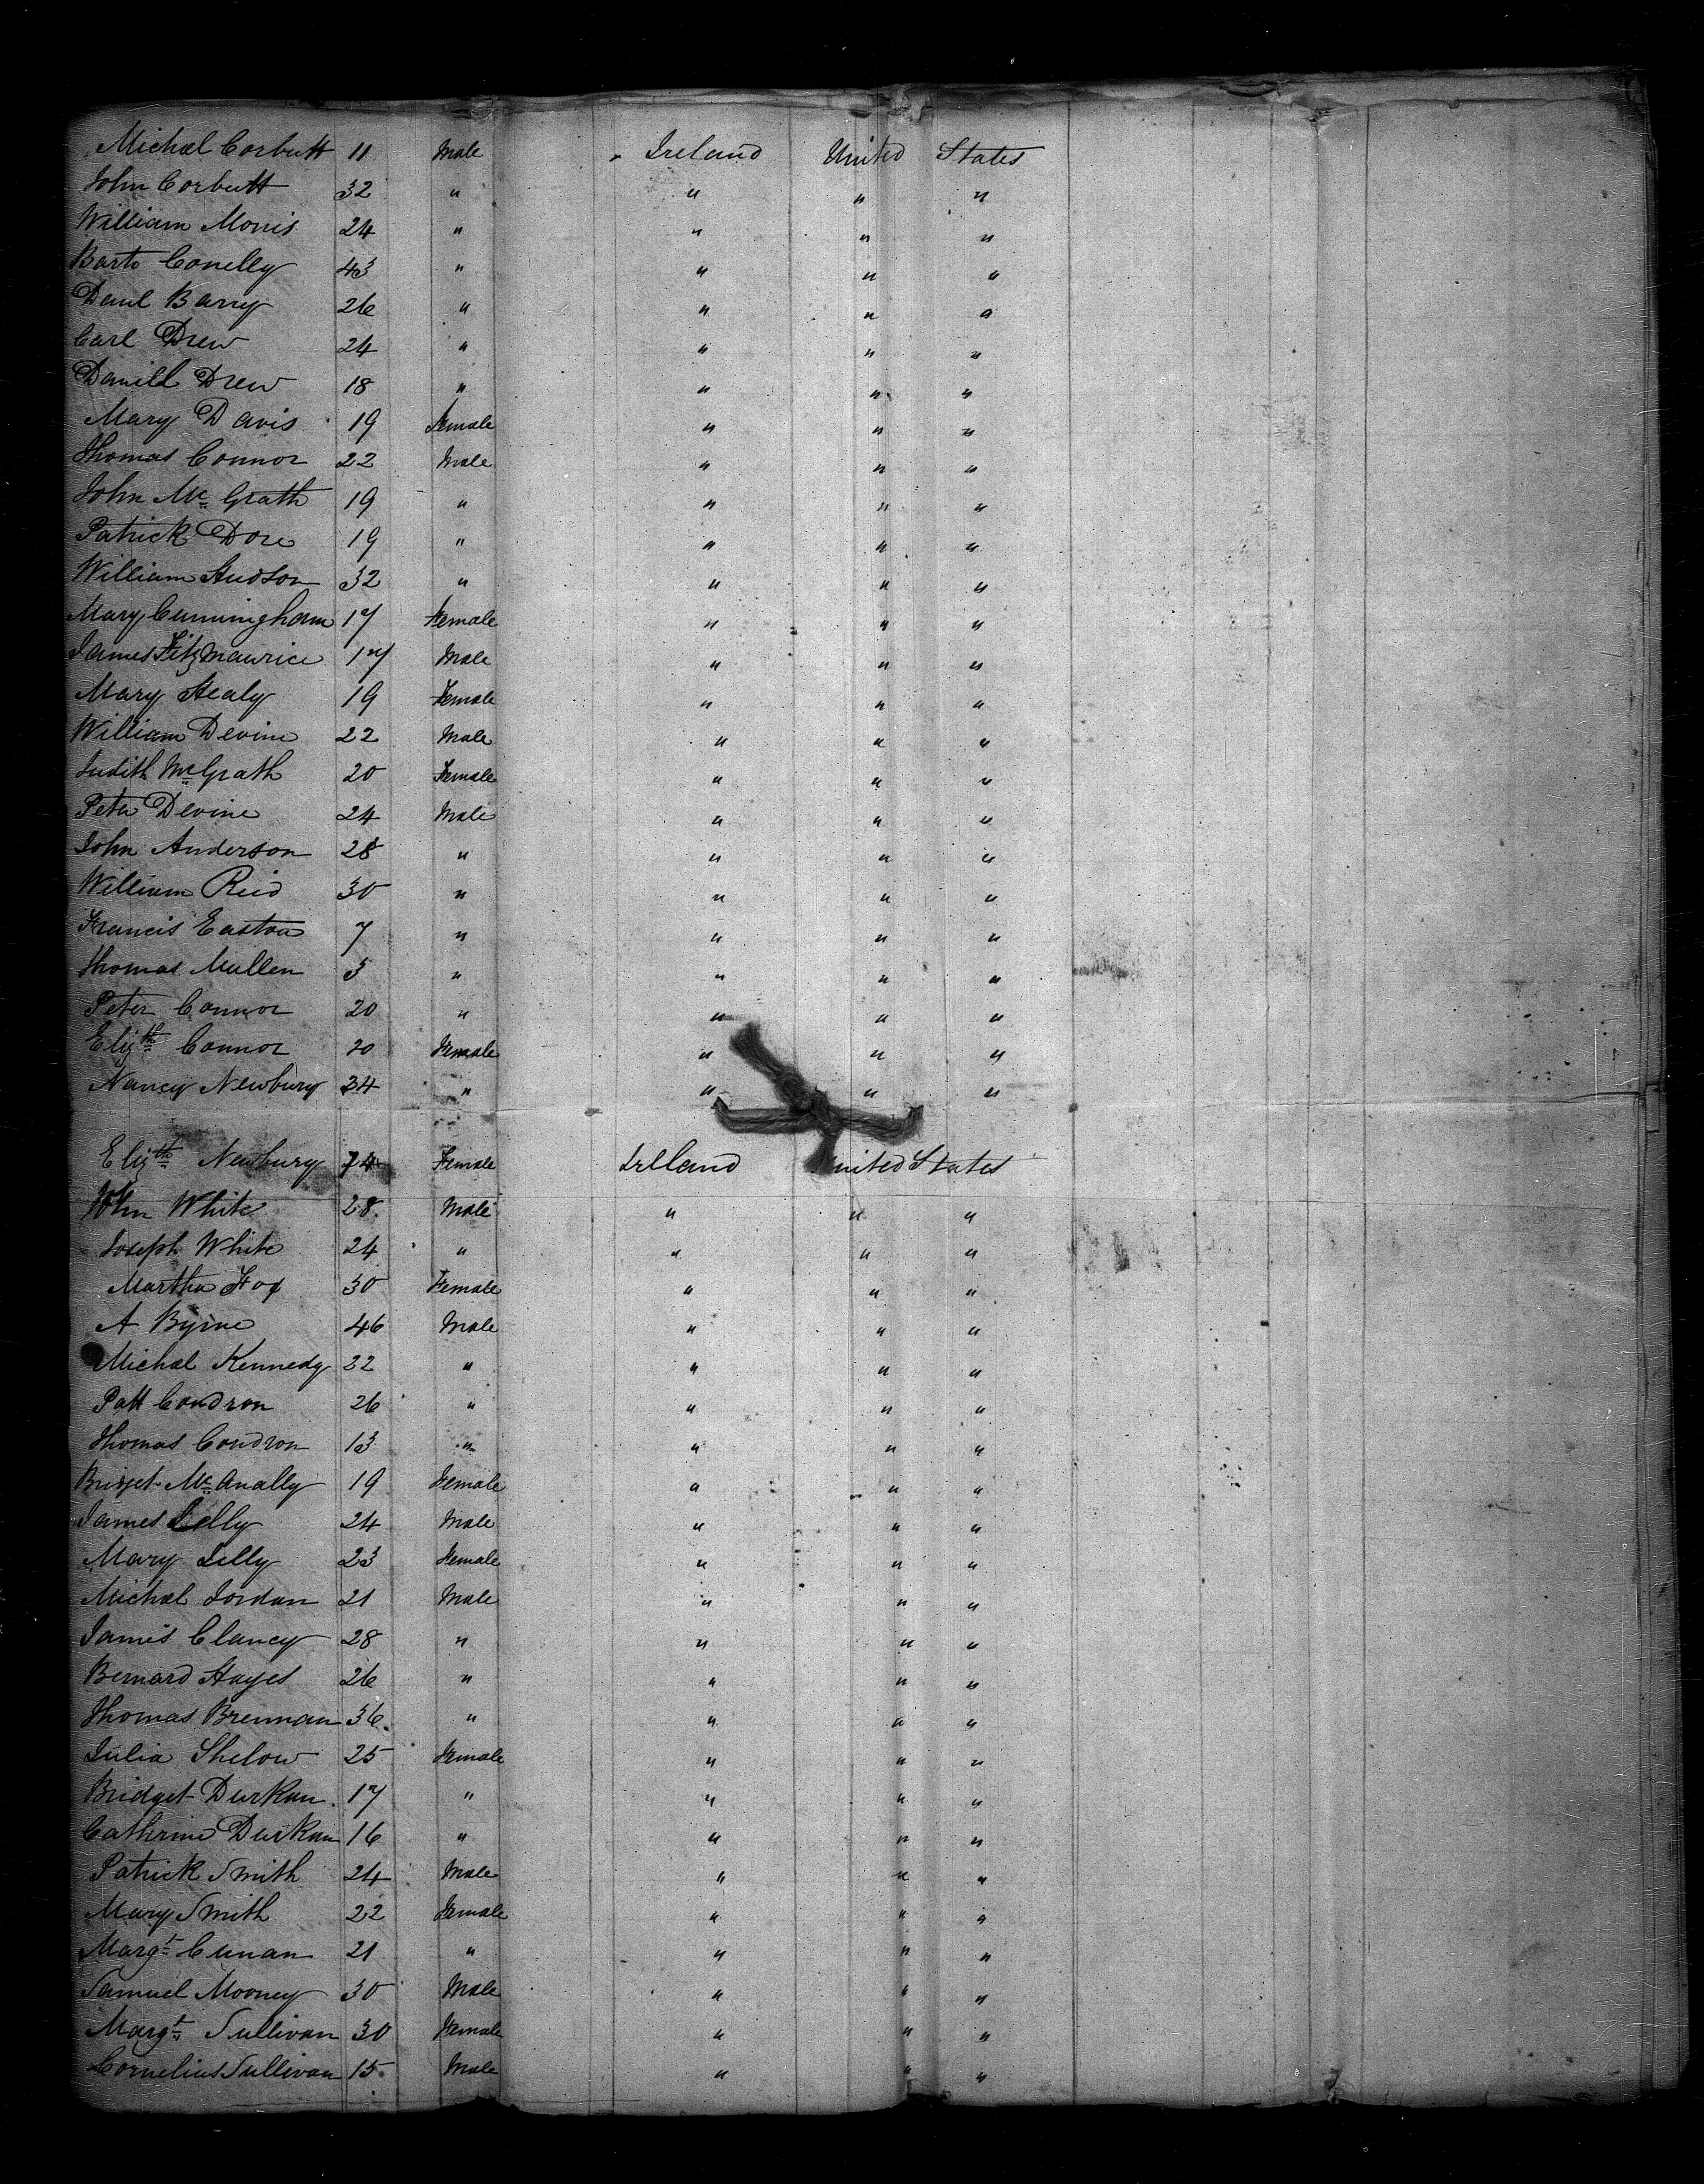 Michæl Corbutt 11 Male Ireland United States
John Corbutt 32 " " " "
William Morris 24 " " " "
Barto Conelly 43 " " " "
Danl Barry 26 " " " "
Carl Drew 24 " " " "
Daniel Drew 18 " " " "
Mary Davis 19 Female " " "
Thomas Connor 22 Male " " "
John Mc Grath 19 " " " "
Patrick Dore 19 " " " "
William Hudson 32 " " " "
Mary Cunningham 17 Female " " "
James Fitzmaurice 17 Male " " "
Mary Healy 19 Female " " "
William Devine 22 Male " " "
Judith McGrath 20 Female " " "
Peter Devine 24 Male " " "
John Anderson 28 " " " "
William Reid 30 " " " "
Francis Easton 7 " " " "
Thomas Mullen 3 " " " "
Peter Connor 20 " " " "
Elizth Connor 20 Female " " "
Nancy Newbury 34 " " " "
Elizth Newbury Female Ireland United States
John White 28 Male " " "
Joseph White 24 " " " "
Martha Fox 30 Female " " "
A Byrne 46 Male " " "
Michæl Kennedy 22 " " " "
Patt Condron 26 " " " "
Thomas Condron 13 " " " "
Bridget McAnally 19 Female " " "
James Lilly 24 Male " " "
Mary Lilly 23 Female " " "
Michæl Jordan 21 Male " " "
James Clancy 28 " " " "
Bernard Hayes 26 " " " "
Thomas Brennan 36 " " " "
Julia Shelow 25 Female " " "
Bridget Durkan 17 " " " "
Cathrine Durkan 16 " " " "
Patrick Smith 24 Male " " "
Mary Smith 22 Female " " "
Margt Cunan 21 " " " "
Samuel Mooney 30 Male " " "
Margt Sullivan 30 Female " " "
Cornelius Sullivan 15 Male " " "